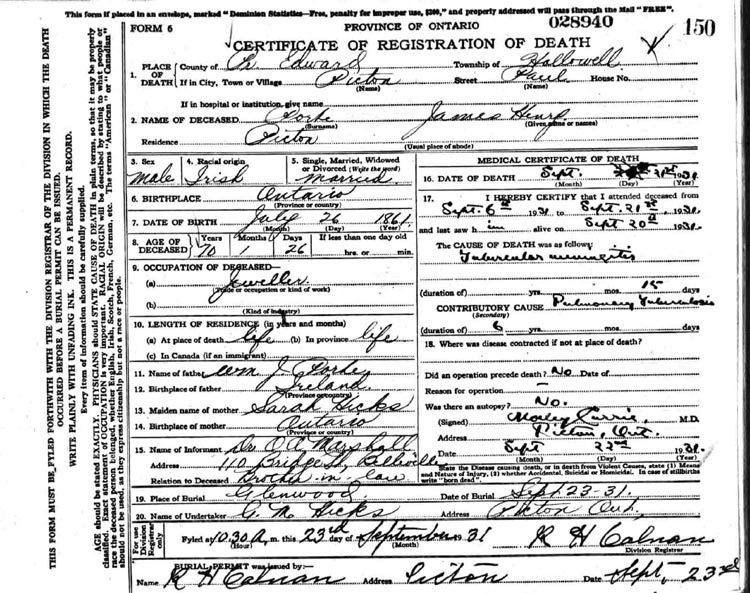 This form if placed in an envelope, marked "Dominion Statistics—Free, penalty for improper use, $300," and properly addressed will pass through the Mail "FREE".
FORM 6
PROVINCE OF ONTARIO
028940
150
CERTIFICATE OF REGISTRATION OF DEATH
1. PLACE OF DEATH
County of Pr. Edward Township of Hallowell
If in City, Town or Village Picton Street Paul House No.
(Name) (Name)
If in hospital or institution, give name
2. NAME OF DECEASED James Henry
(Surname) (Given name or names)
Residence Picton
(Usual place of abode)
3. Sex
male
4. Racial origin
Irish
5. Single, Married, Widowed or Divorced (Write the word)
Married
6. BIRTHPLACE Ontario
(Province or country)
7. DATE OF BIRTH July 26 1861
(Month) (Day) (Year)
8. AGE OF DECEASED
Years Months Days If less than one day old
70 1 26 hrs. or min.
9. OCCUPATION OF DECEASED—
(a) Jeweller
(Trade or occupation or kind of work)
(b)
(Kind of industry)
10. LENGTH OF RESIDENCE (in years and months)
(a) At place of death life (b) In province life
(c) In Canada (if an immigrant)
11. Name of father Wm J
12. Birthplace of father Ireland
(Province or country)
13. Maiden name of mother Sarah Hicks
14. Birthplace of mother Ontario
(Province or country)
15. Name of Informant Dr Marshall
Address 110 Bridge St, Belleville
Relation to Deceased Brother in law
MEDICAL CERTIFICATE OF DEATH
16. DATE OF DEATH Sept. 21st 1931
(Month) (Day) (Year)
17. I HEREBY CERTIFY that I attended deceased from
Sept. 6th 1931 to Sept. 21st, 1931.
and last saw him alive on Sept 20th 1931.
The CAUSE OF DEATH was as follows:
Tubercular meningitis
(duration of) yrs. mos. 15 days
CONTRIBUTORY CAUSE Pulmonary Tuberculosis
(Secondary)
(duration of) 6 yrs. mos. days
18. Where was disease contracted if not at place of death?
Did an operation precede death? No Date of
Reason for operation —
Was there an autopsy? No.
(Signed) Morley Currie M.D.
Address Picton, Ont.
Date Sept 22nd 1931.
State the Disease causing death, or in death from Violent Causes, state (1) Means and Nature of Injury, (2) whether Accidental, Suicidal or Homicidal. In case of stillbirths write "born dead".
19. Place of Burial Glenwood Date of Burial Sept 23-31.
20. Name of Undertaker G. M. Hicks Address Picton Ont.
For use of Division Registrar only
Filed at 10.30 a. m. this 23rd day of September 1931 R H Calnan
(Month) Division Registrar
BURIAL PERMIT was issued by:—
Name R H Calnan Address Picton Date Sept, 23rd
THIS FORM MUST BE FILED FORTHWITH WITH THE DIVISION REGISTRAR OF THE DIVISION IN WHICH THE DEATH
OCCURRED BEFORE A BURIAL PERMIT CAN BE ISSUED.
WRITE PLAINLY WITH UNFADING INK. THIS IS A PERMANENT RECORD.
Every item of information should be carefully supplied.
AGE should be stated EXACTLY. PHYSICIANS should STATE CAUSE OF DEATH in plain terms, so that it may be properly
classified. Exact statement of OCCUPATION is very important. RACIAL ORIGIN will be described by stating to what people or
race the deceased person belonged, whether English, Irish, Scotch, French, German, etc. The terms "American" or "Canadian"
should not be used, as they express citizenship but not a race or people.